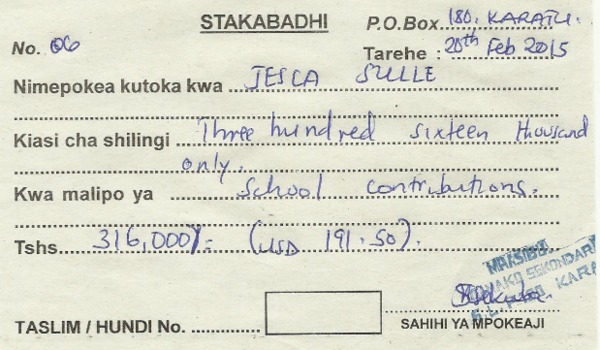 STAKABADHI
P.O.Box 180. KARATU.
No. 06
Tarehe: 20th Feb 2015
Nimepokea kutoka kwa JESCA SULLE
Kiasi cha shilingi Three hundred sixteen thousand
only.
Kwa malipo ya School contributions.
Tshs. 316,000/= (USD 191.50).
TASLIM / HUNDI No.
SAHIHI YA MPOKEAJI